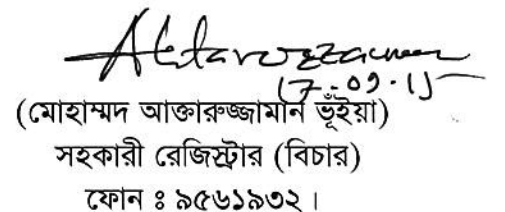 Aktaruzzaman
17-09-15
(মোহাম্মদ আক্তারুজ্জামান ভূঁইয়া)
সহকারী রেজিস্ট্রার (বিচার)
ফোন ঃ ৯৫৬১৯৩২।